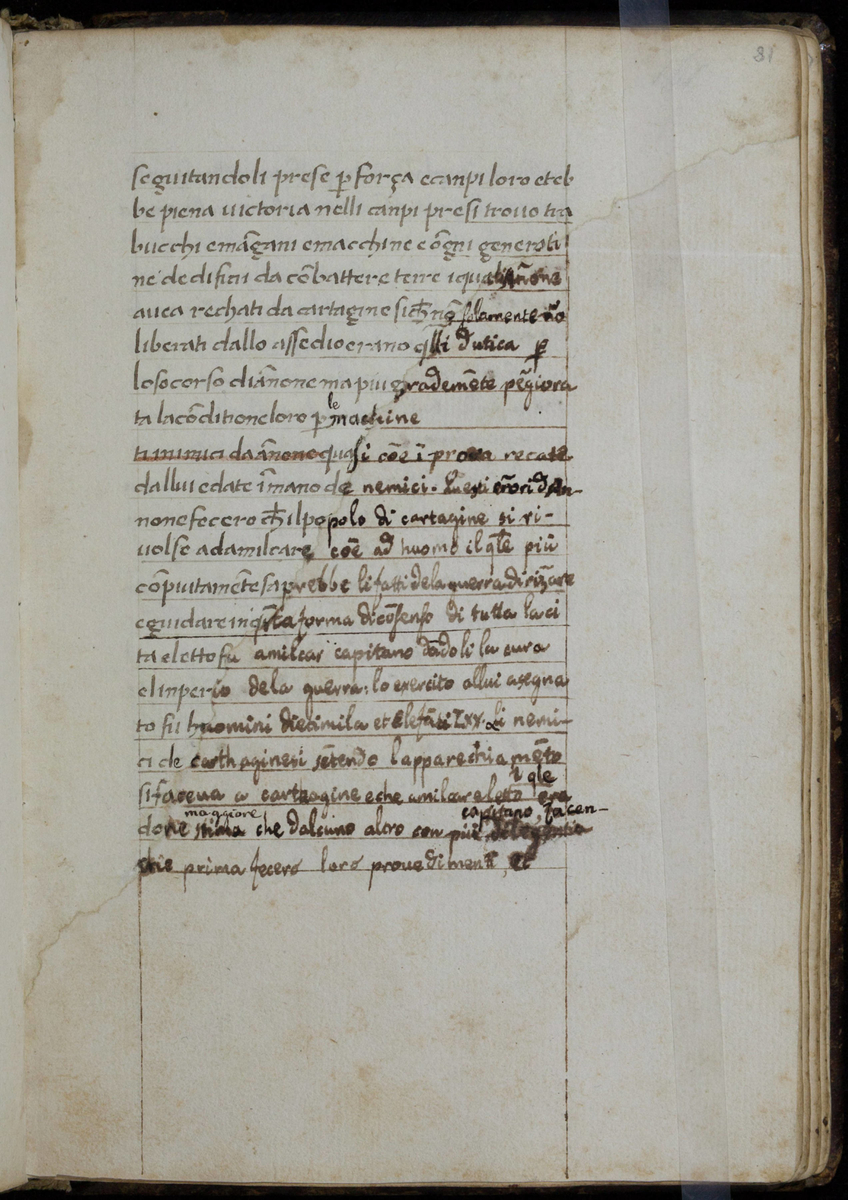 81
seguitandoli prese ꝑ força ecanpi loro eteb
be piena uictoria nelli canpi presi trouo tra
bucchi emāgani emacchine e ōgni generati
ne dedificii da cōbattere terre iquali āñone
auea rechati da cartagine sicħ nō solamente nō
liberati dallo assedio erano q̄lli dutica ꝑ
lo socorso diānone ma piu grademēte pegiora
ta la cōditione loro ꝑ le machine
da ānone quasi cōe ī proua recate
dallui edate īmano de nemici. Questi erōri dan-
none fecero cħ ilpopolo di cartagine si ri-
uolse adamilcare cōe ad huomo il q̄le più
cōpiutamēte saprebbe li fatti dela guerra dirizare
eguidare inq̄sta forma dicōsenso di tutta la ci
ta eletto fu amilcar capitano dādoli la cura
elinperio dela guerra: lo exercito allui asegna
to fu huomini diecimila et elefāti Lxx. Li nemi-
ci de carthaginesi sētendo lapparechiamēto
si faceua a carthagine e che amilcare eletto il q̄le era
done maggiore stima che dalcuno altro capitano, facen-
con più delegentia
che prima fecero loro prouedimenti, et